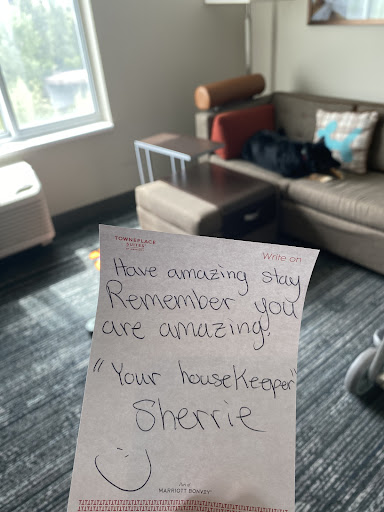 TOWNEPLACE
SUITES
Write on
Have amazing stay
Remember you
are amazing!
"Your housekeeper"
Sherrie
MARRIOTT BONVOY